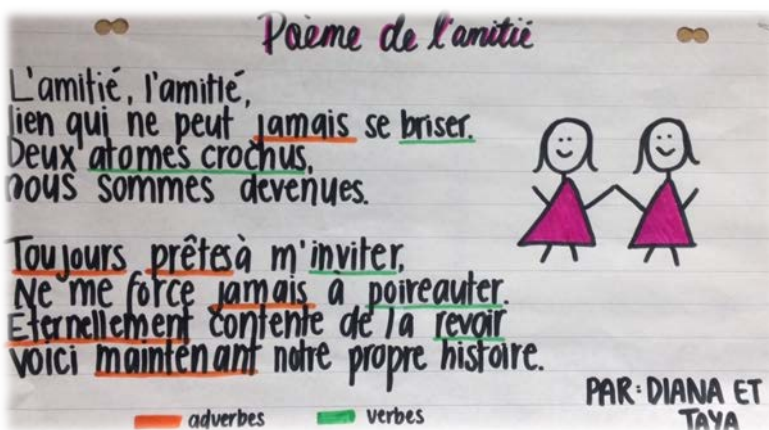 Poème de l'amitié
L'amitié, l'amitié,
lien qui ne peut jamais se briser.
Deux atomes crochus,
nous sommes devenues.
Toujours prêtes à m'inviter,
Ne me force jamais à poireauter.
Éternellement contente de la revoir
voici maintenant notre propre histoire.
PAR: DIANA ET
TAYA
adverbes
verbes